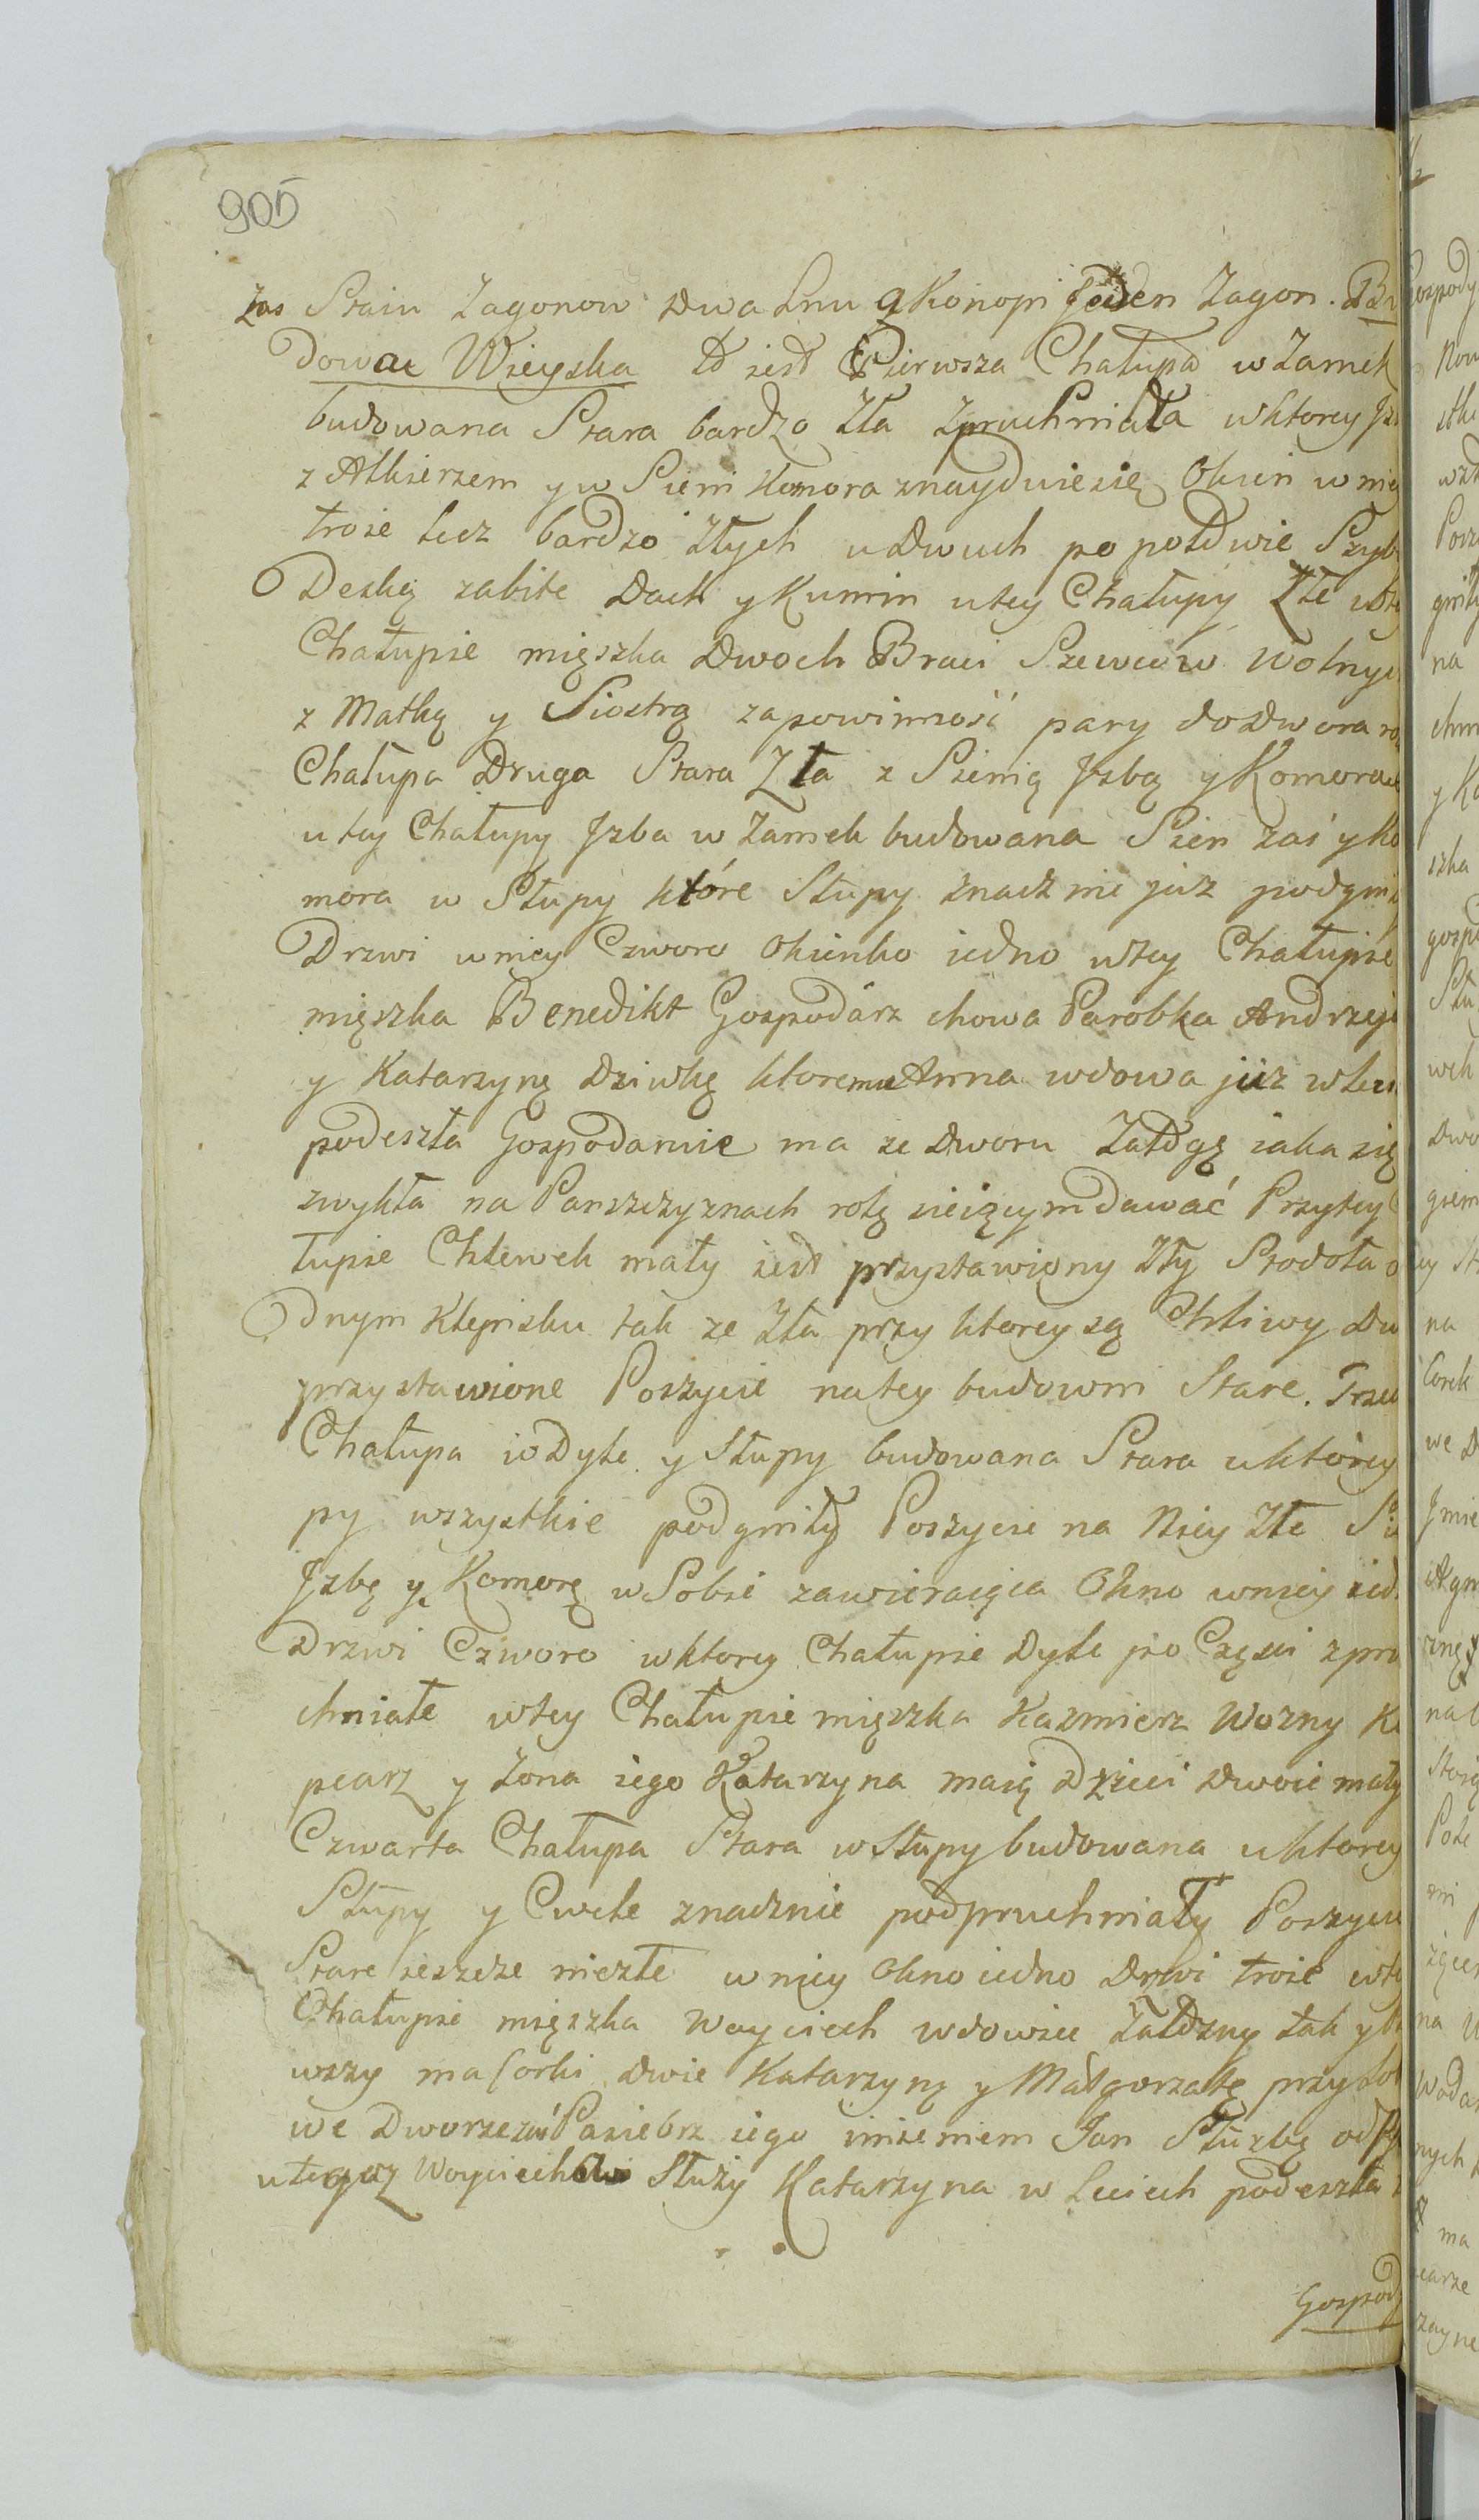 905
zas Staiu Zagonow Dwa Lnu y Konopi Jeden Zagon. Bu
dowae Wieyska to iest Pierwsza Chałupa w Zamek
budowana Stara bardzo Zła Zpruchniała wktorey Jz
z Alkierzem y w Sieni Komora znayduiesię Okien w niey
troie lecz bardzo złych u Dwuch po połdwie Szyb
Deską zabite Dach y Kumin utey Chałupy Złe wtey
Chałupie mięszka Dwoch Braci Szewców Wolnych
z Matką y Siostrą za powinność pary do Dwora ro
Chałupa Druga Stara Zła z Sienią Jzbą y Komora
u tey Chałupy Jzba w Zamek budowana Sien zaś y Ko
mora w Słupy które Słupy znacznie już podgni
Drzwi wniey Czworo Okienko iedno wtey Chałupie
mięszka Benedikt Gospodárz chowa Parobka Andrzeja
y Katarzynę Dziwkę ktoremu Anna wdowa już wlec
podeszła Gospodaruie ma ze Dworu Załogę iaka się
zwykła na Panszczyznach rolę sieiącym dawać Przytey
łupie Chlewek mały iest przystawiony Zły Stodoła o
Dnym Klepisku tak ze Zła przy ktorey są Chliwy Dw
przystawione Poszycie natey budowni Stare. Trzec
Chałupa w Dyle y Słupy budowana Stara uktórey
py wszystkie podgniły Poszycie na Niey Złe Si
Jzbę y Komorę w Sobie zawieraiąca Okno wniey ied
Drzwi Czworo wktorey Chałupie Dyle po Części zpro
chniałe wtey Chałupie mięszka Kazmierz Wozny K
pcarz y Zona iego Katarzyna maią Dzieci Dwoie mały
Czwarta Chałupa Stara w Słupy budowana uktorey
Słupy y Cwele znacznie podpruchniały Poszycie
Stare ieszcze niezłe wniey Okno iedno Drzwi troie wtey
Chałupie mięszka Woyciech wdowiec tak y
wszy ma Corki Dwie Katarzynę y Małgorzatę przy
we Dworze zaś Pasiebrz iego imieniem Jan Służbę od
utegoz Woyciechowi Służy Katarzyna w Leciech podeszła
Gospod